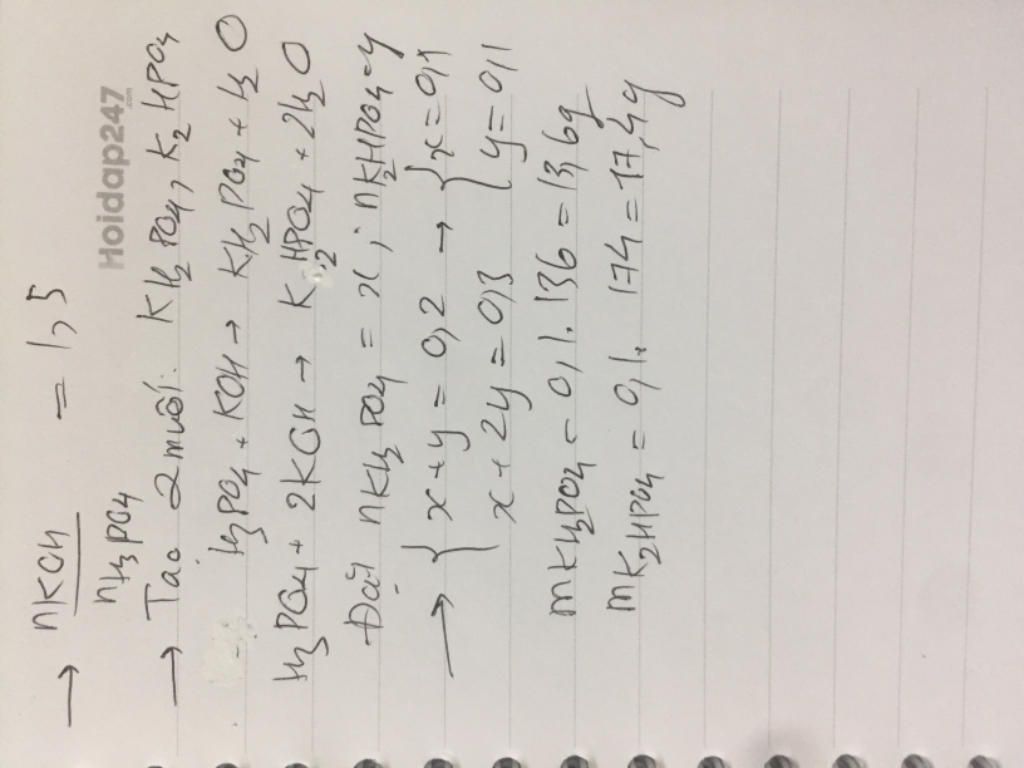 → nKOH / nH₃PO₄ = 1,5
Hoidap247.com
→ Tạo 2 muối: KH₂PO₄, K₂HPO₄
H₃PO₄ + KOH → KH₂PO₄ + H₂O
H₃PO₄ + 2KOH → K₂HPO₄ + 2H₂O
Đặt nKH₂PO₄ = x ; nK₂HPO₄ = y
→ { x + y = 0,2 → { x = 0,1
x + 2y = 0,3 y = 0,1
mKH₂PO₄ = 0,1 . 136 = 13,6g
mK₂HPO₄ = 0,1. 174 = 17,4g